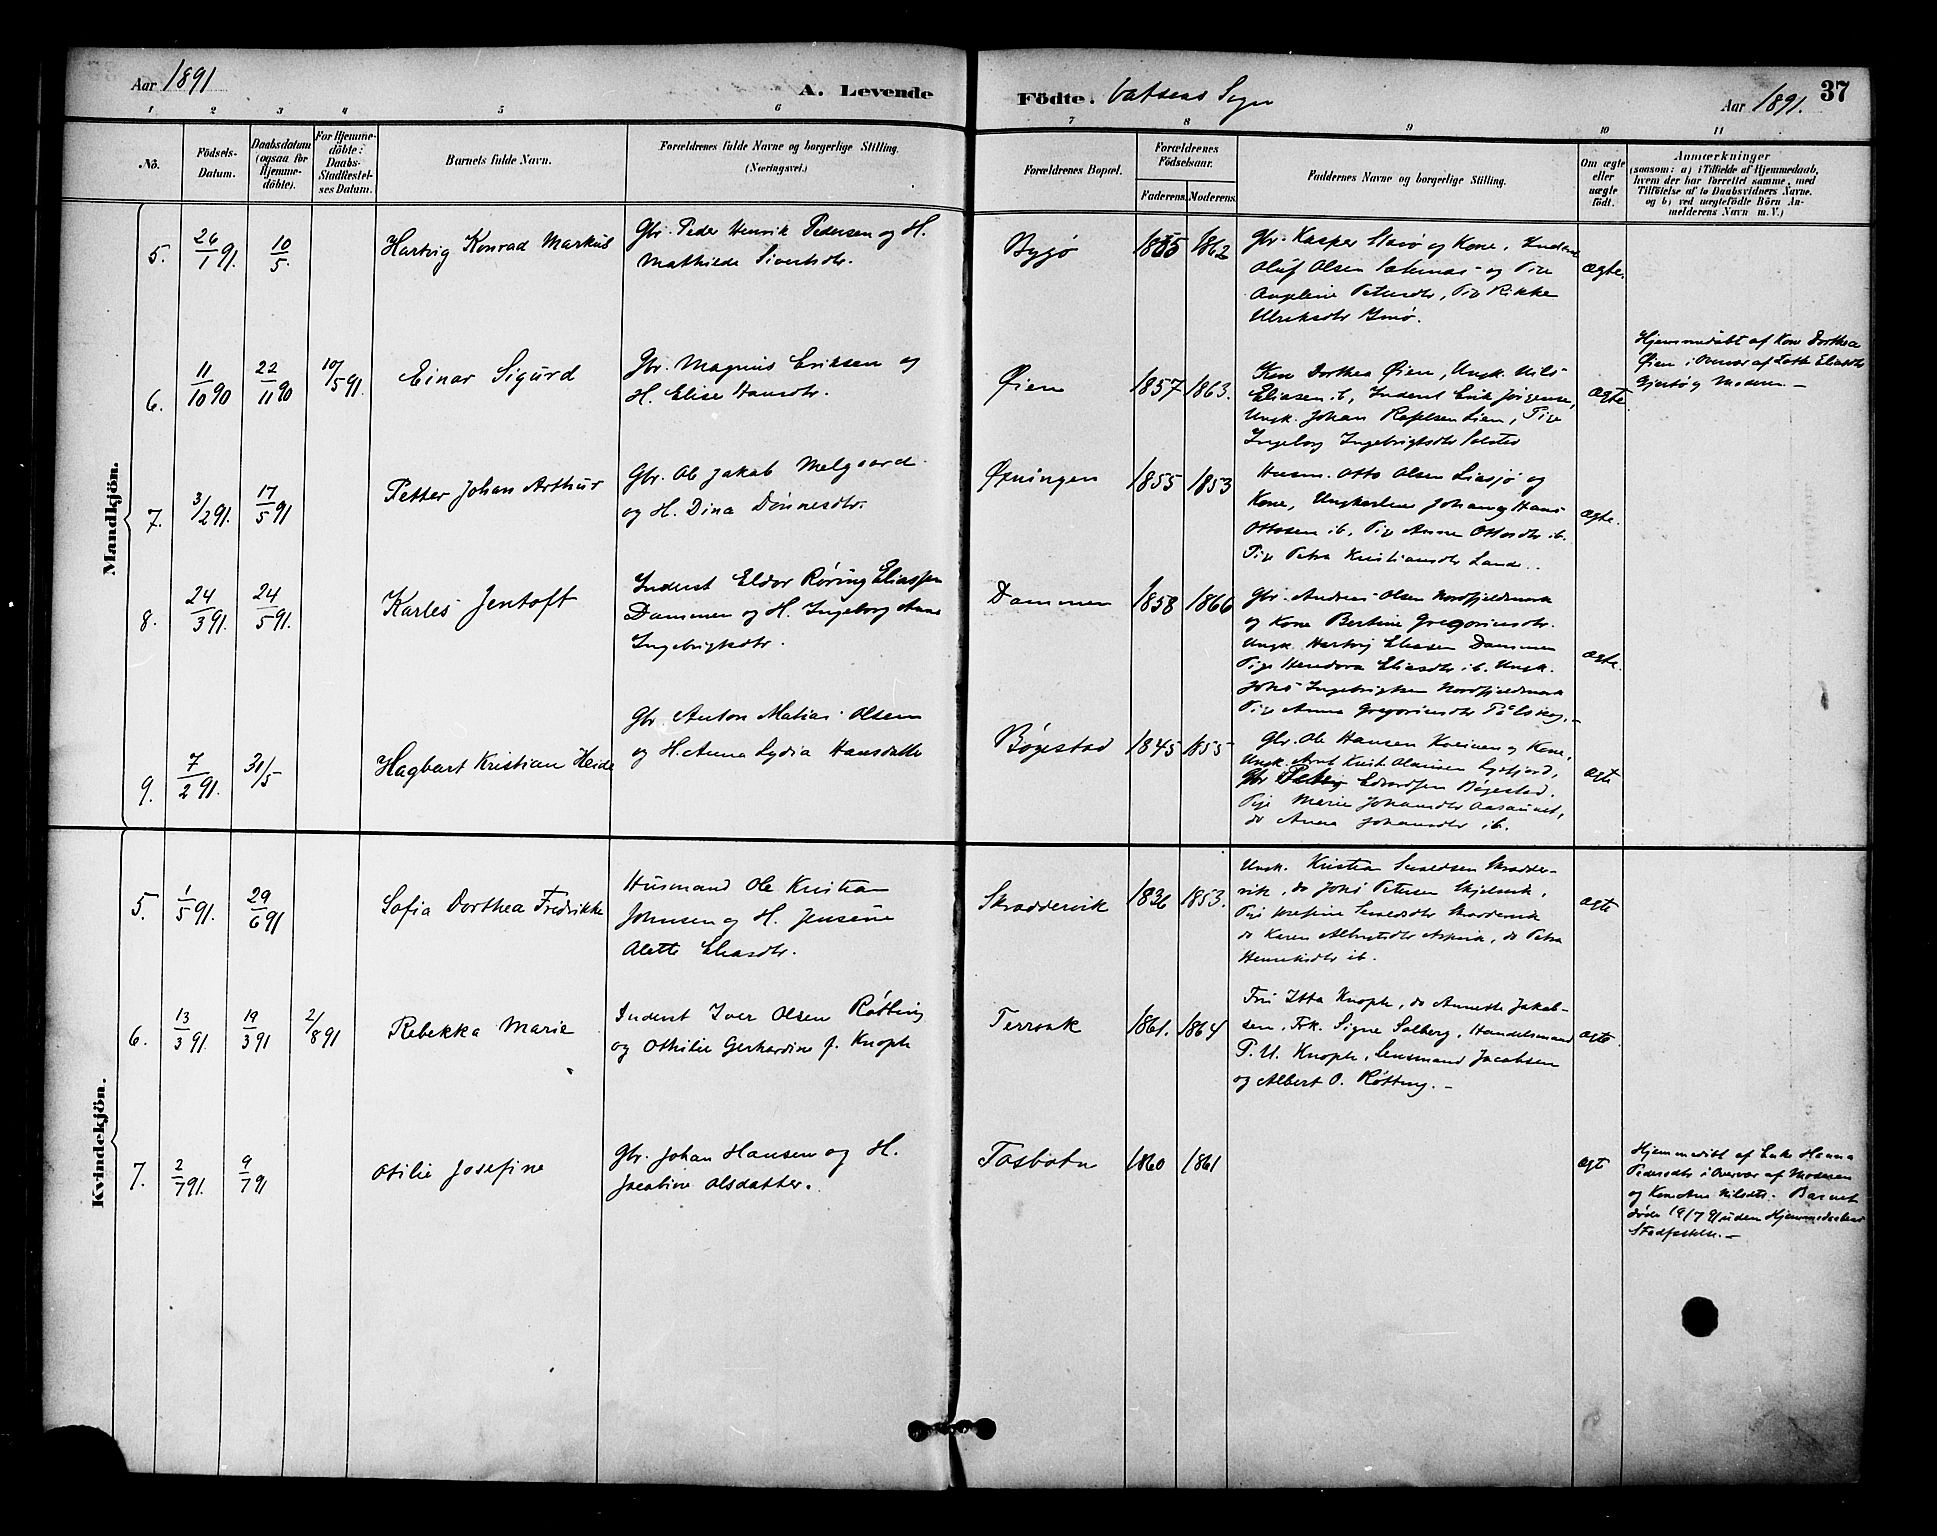 Aar 1891
A. Levende
Födte. Vatsens Sogn
Aar 1891. 37
1 2 3 4 5 6 7 8 9 10 11
No.
Födsels-
Datum.
Daabsdatum
(ogsaa for
Hjemme-
döbte).
For Hjemme-
döbte:
Daabs-
Stadfæstel-
ses Datum.
Barnets fulde Navn.
Forældrenes fulde Navne og borgerlige Stilling.
(Næringsvei.)
Forældrenes Bopæl.
Forældrenes
Födselsaar.
Faderens. Moderens.
Faddernes Navne og borgerlige Stilling.
Om ægte
eller
uægte
födt.
Anmærkninger
(saasom: a) i Tilfælde af Hjemmedaab,
hvem der har forrettet samme, med
Tilföielse af to Daabsvidners Navne.
og b) ved uægtefödte Börn An-
melderens Navn m. V.)
Mandkjön.
5. 26/1 91. 10/5.
Hartvig Konrad Markus
Gbr. Peder Henrik Pedersen og H.
Mathilde Sivertsdtr.
Bygø
1865 1862
Gbr. Kasper og Kone, Inderst
Oluf Olsen og Pige
Angeline Petersdtr, Pige Rikke
Ulriksdtr
ægte.
6. 11/10 90 22/11 90 10/5 91.
Einar Sigurd
Gbr. Magnus Eriksen og
H. Elise Hansdtr.
Øien
1857 1863.
Kone Dorthea Øien, Ungk. Nils
Eliasen ib, Inderst Erik Jörgensen,
Ungk. Johan Rafelsen Lien, Pige
Ingeborg Ingebrigtsdtr
ægte
Hjemmedöbt af Kone Dorthea
Øien i Overvær af Eliasdtr
og Moderen.—
7. 3/2 91. 17/5 91
Petter Johan Arthur
Gbr. Ole Jakob Melgaard
og H. Dina Dönnesdtr.
Øxningen
1855 1853
Husm. Otto Olsen Liasjø og
Kone, Ungkarlene Johan og Hans
Ottosen ib, Pige Anne Ottosdtr ib.
Pige Petra Kristiansdtr Land..
ægte.
8. 24/3 91. 24/5 91.
Karles Jentoft
Inderst Eldor Røring Eliassen
Dammen og H. Ingeborg Anna
Ingebrigtsdtr.
Dammen
1858 1866
Gbr. Andreas Olsen Nordfjeldmark
og Kone Bertine Gregoriusdtr.
Ungk. Hartvig Eliasen Dammen
Pige Eliasdtr ib. Ungk.
Johs Ingebrigtsen Nordfjeldmark
Pige Anna Gregoriusdtr
ægte.
9. 7/2 91. 31/5
Hagbart Kristian Heide
Gbr. Anton Matias Olsen
og H. Anna Lydia Hansdatter
Bøgestad
1845 1855
Gbr. Ole Hansen og Kone,
Ungk. Arnt Krist. Olausen
Gbr. Edvardsen Bøgestad.
Pige Marie Johansdtr Aasaunet,
do Anna Johansdtr ib.
ægte
Kvindekjön.
5. 1/5 91. 29/6 91
Sofia Dorthea Fredrikke
Husmand Ole Kristian
Johnsen og H. Jensine
Alette Eliasdtr.
Skraddervik
1836 1853.
Ungk. Kristian Skradder-
vik, do Johs Petersen
Pige Josefine Skraddervik
do Karen do Petra
Henriksdtr ib.
ægte
6. 13/3 91. 19/3 91 2/8 91
Rebekka Marie
Inderst Iver Olsen Røtting
og Othilie Gerhardine f. Knoph
Terraak
1861. 1864
Fru Itta Knoph, do Annette Jakob-
sen, Frk. Signe Solberg, Handelsmand
P. U. Knoph, Lensmand Jacobsen
og Albert O. Røtting.—
ægte
7. 2/7 91. 9/7 91
Otilie Josefine
Gbr. Johan Hansen og H.
Jacobine Olsdatter.
Tosbotn
1860 1861
ægt
Hjemmedöbt af Hanna
Pedersdtr i Overvær af Moderen
og Kone Nilsdtr. Barnet
døde 19/7 91 uden Hjemmedaabens
Stadfæstelse.—